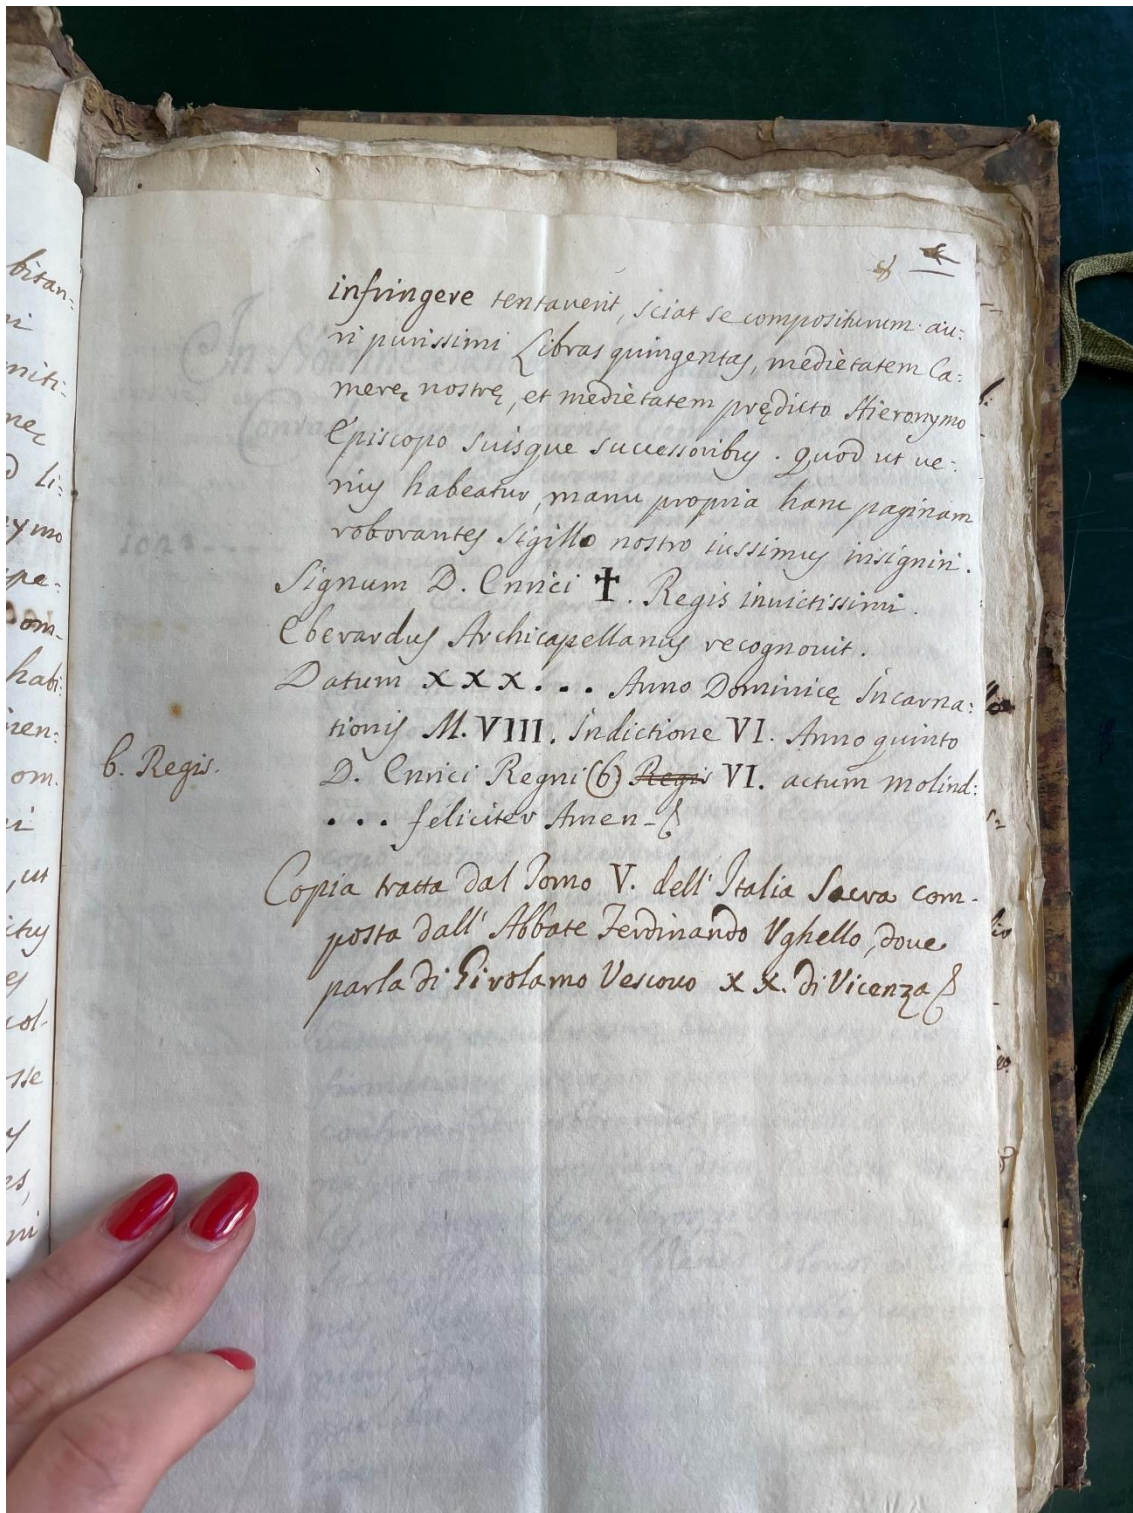 bitan:
ni
miti-
nec
li:
ymo
pe:
om-
habi:
men:
om.
ut
col-
sse
8
infringere tentaverit, sciat se compositurum au:
ri purissimi Libras quingentas, medietatem Ca:
merę nostrę, et medietatem prędicto Hieronymo
Episcopo suisque successoribus. quod ut ve:
rius habeatur, manu propria hanc paginam
roborantes sigillo nostro iussimus insigniri.
Signum D. Enrici ✝. Regis invictissimi.
Eberardus Archicapellanus recognovit.
Datum XXX. . . Anno Dominicę Incarna:
tionis M. VIII. Indictione VI. Anno quinto
b. Regis.
D. Enrici Regni (b) Regis VI. actum Molind:
. . . feliciter Amen-
Copia tratta dal Tomo V. dell' Italia Sacra com-
posta dall' Abbate Ferdinando Ughello, dove
parla di Girolamo Vescovo XX. di Vicenza